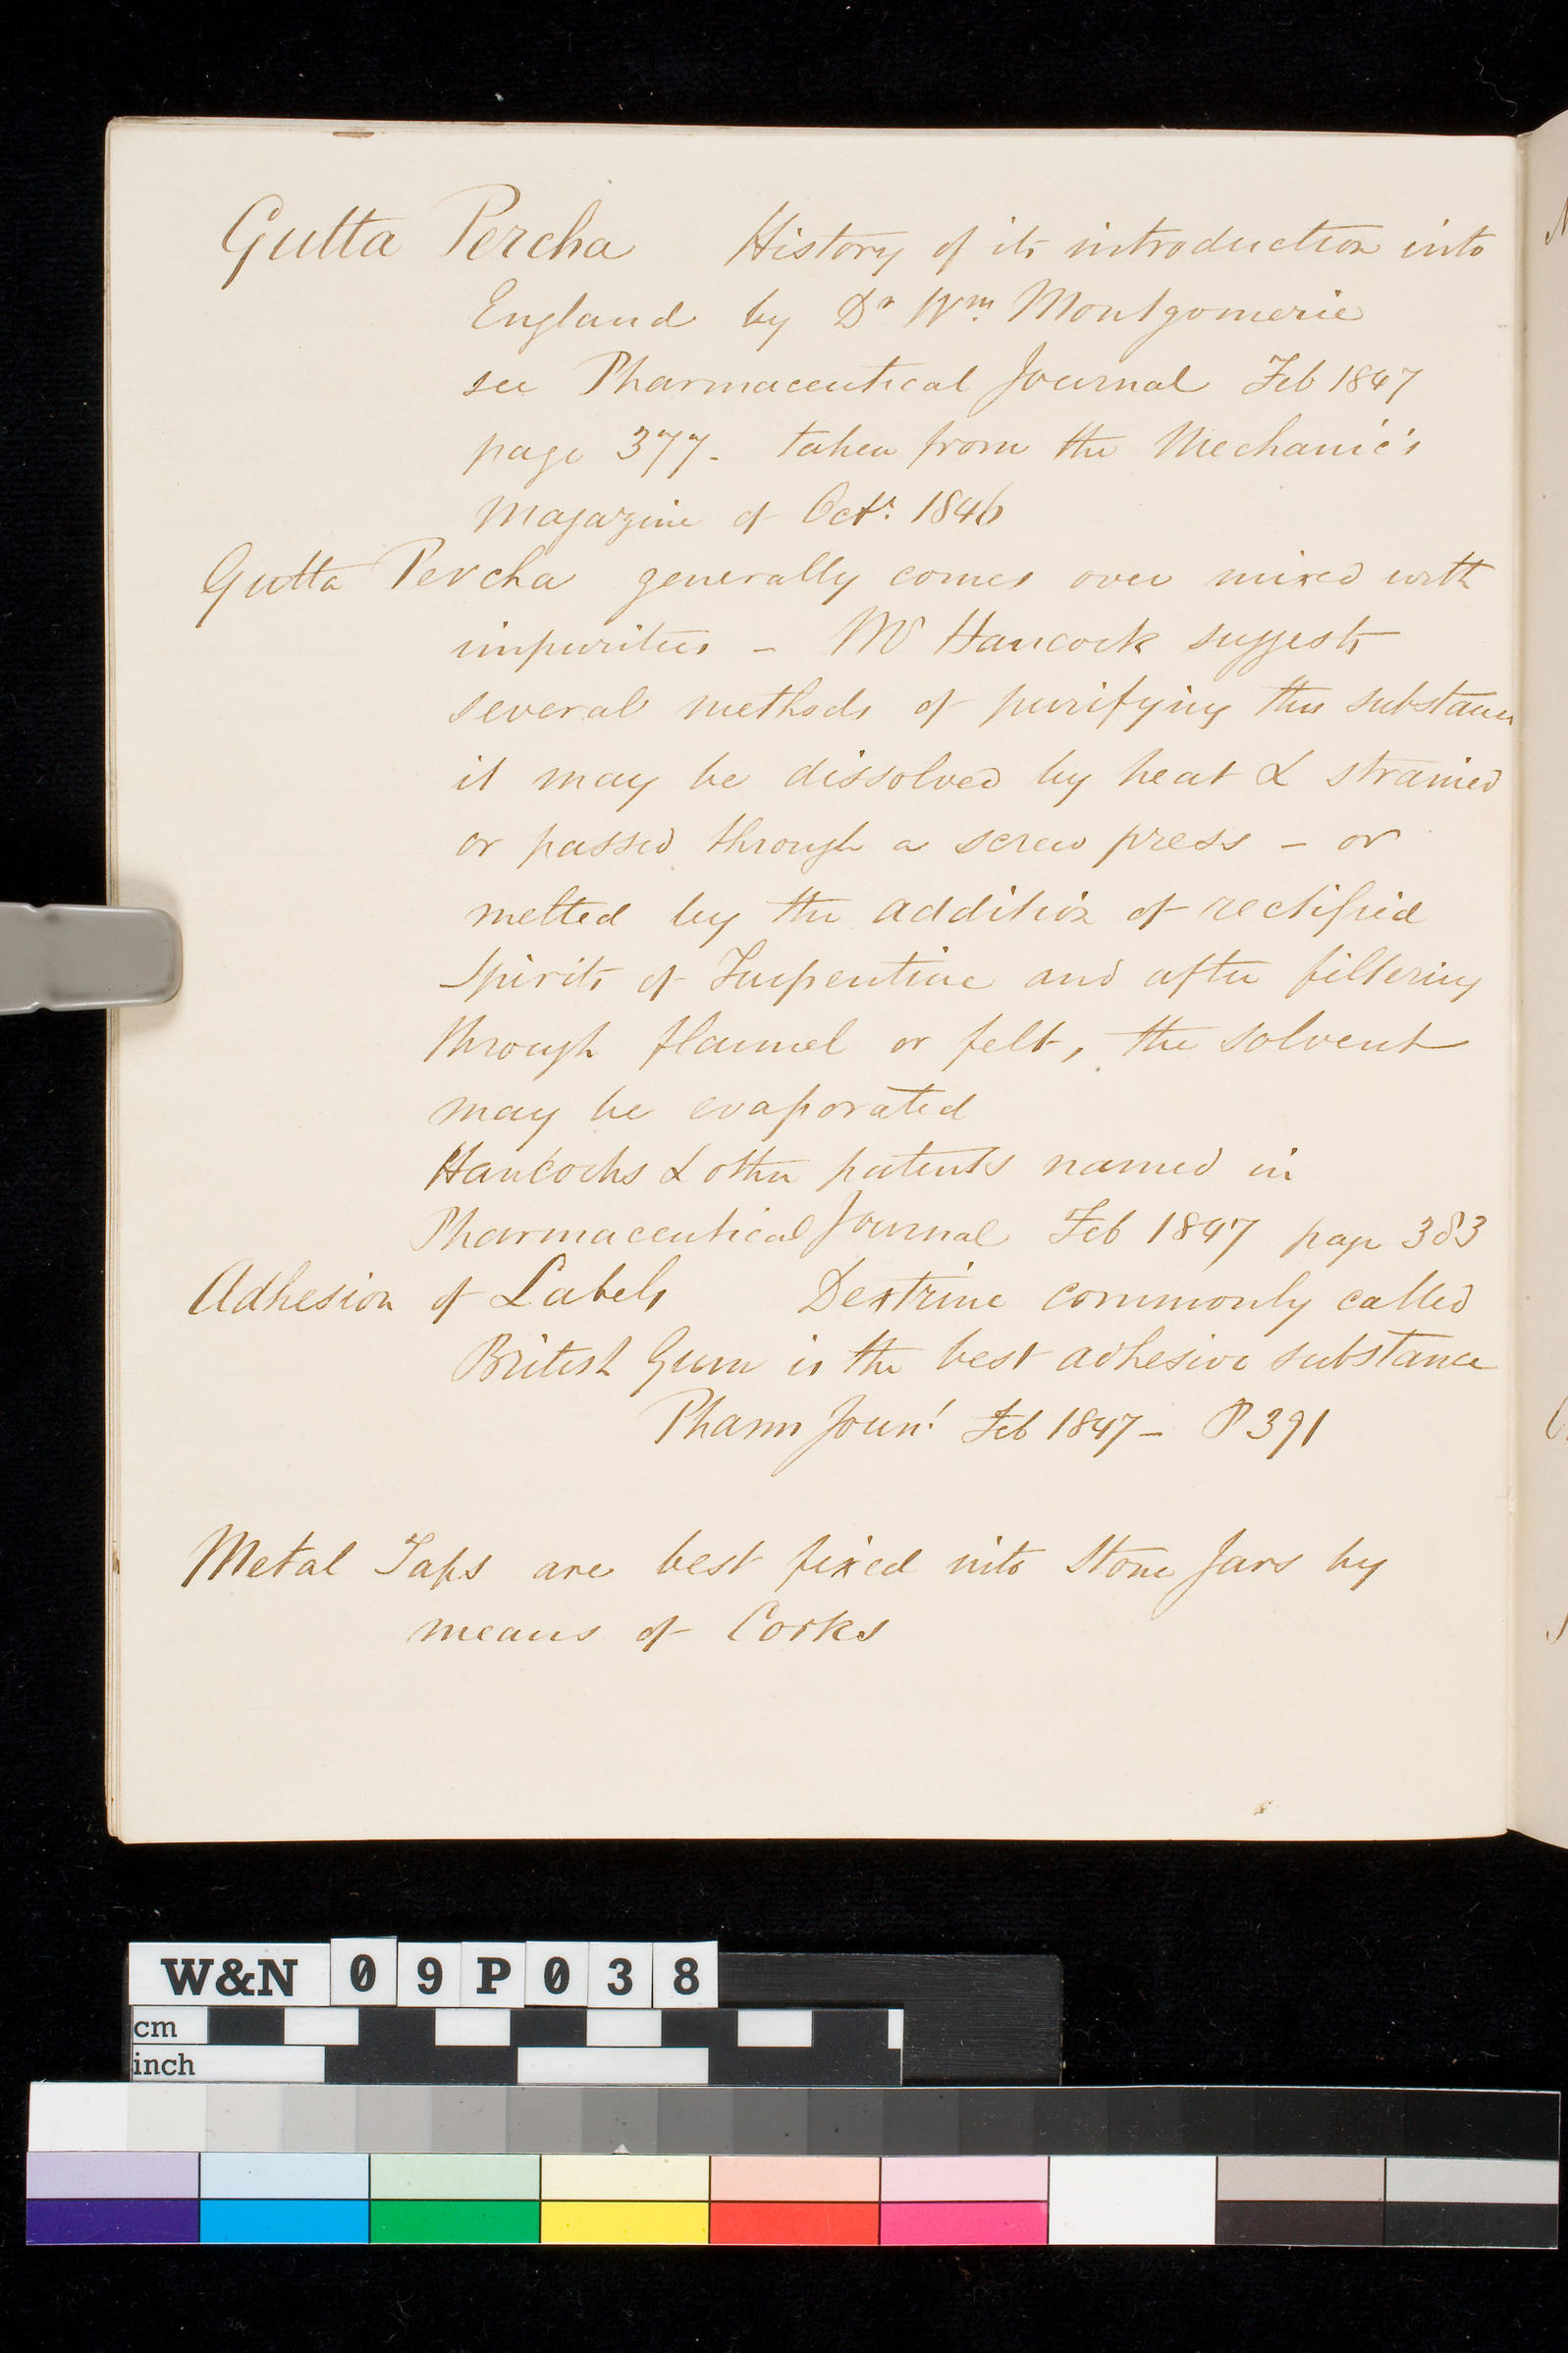 Gutta Percha History of its introduction into
England by Dr Wm. Montgomerie
see Pharmaceutical Journal Feb 1847
page 377 - taken from the Mechanic's
Magazine of Octr. 1846
Gutta Percha generally comes over mixed with
impurities - Mr Hancock suggests
several methods of purifying this substance
it may be dissolved by heat & strained
or passed through a screw press - or
melted by the addition of rectified
Spirits of Turpentine and after filtering
through flannel or felt, the solvent
may be evaporated
Hancocks & other patents named in
Pharmaceutical Journal Feb 1847 page 383
Adhesion of Labels Dextrine commonly called
British Gum is the best adhesive substance
Pharm Journl Feb 1847 - P 391
Metal Taps are best fixed into Stone Jars by
means of Corks
W&N 09P038
cm
inch